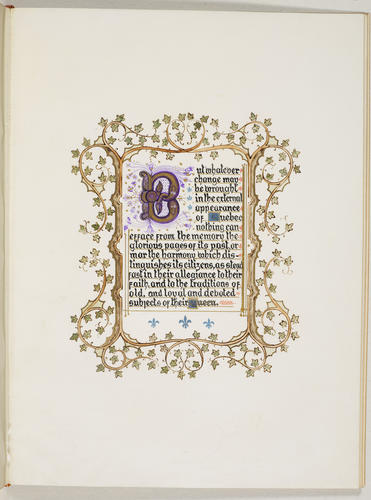 But whatever
change may
be wrought
in the external
appearance
of Quebec
nothing can
efface from the memory the
glorious pages of its past, or
mar the harmony which dis-
tinguishes its citizens, as stead
fast in their allegiance to their
Faith, and to the traditions of
old, and loyal and devoted
subjects of their Queen.